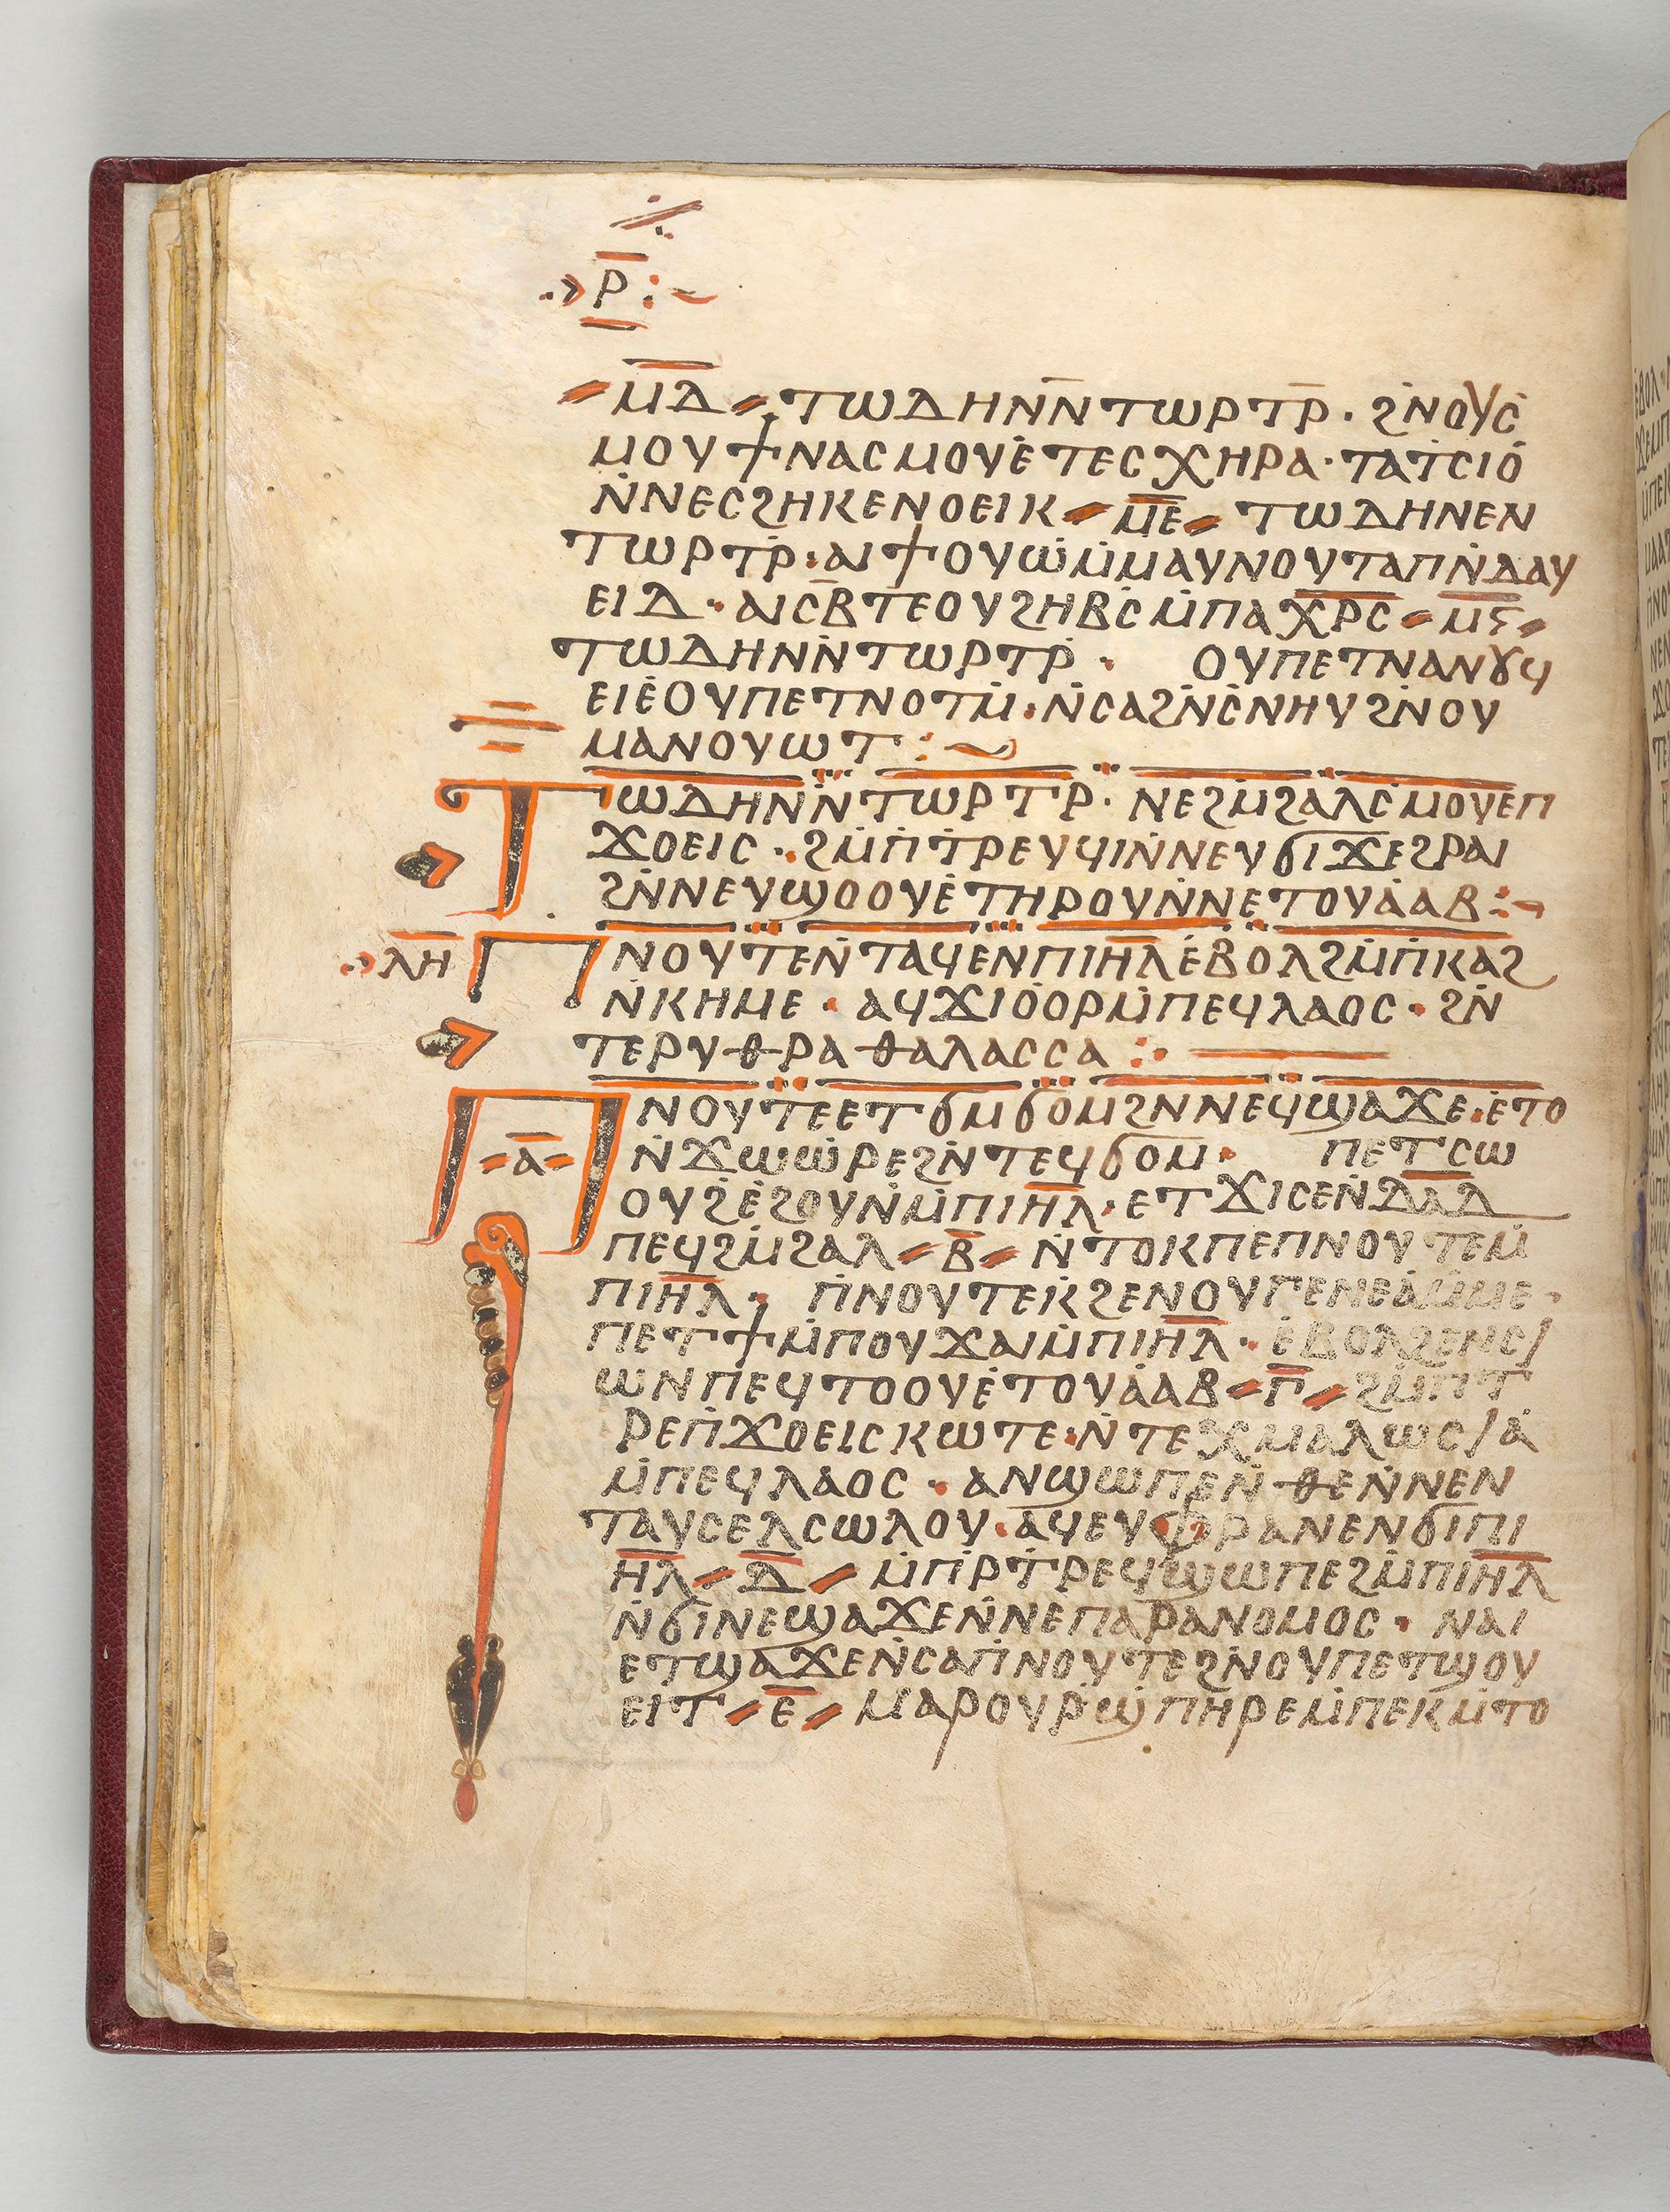 Ⲣ̅
ⲙ̅ⲇ̅ ⲧⲱⲇⲏⲛⲛ̄ⲧⲱⲣⲧⲣ̄· ϩⲛ̇ⲟⲩⲥ̇
ⲙⲟⲩϯⲛⲁⲥⲙⲟⲩⲉ̇ⲧⲉⲥⲭⲏⲣⲁ· ⲧⲁⲧ̇ⲥⲓⲟ̇
ⲛ̇ⲛⲉⲥϩⲏⲕⲉⲛⲟⲉⲓⲕ ⲙ̅ⲉ̅ ⲧⲱⲇⲏⲛⲉⲛ
ⲧⲱⲣⲧⲣ̇· ⲁⲓϯⲟⲩⲱ̇ⲙ̇ⲙⲁⲩⲛⲟⲩⲧⲁⲡⲛ̇ⲇⲁⲩ
ⲉⲓⲇ· ⲁⲓⲥⲃ̄ⲧⲉⲟⲩϩⲏⲃⲥ̇ⲙ̇ⲡⲁⲭ̅ⲣ̅ⲥ̅ ⲙ̅ⲋ̅
ⲧⲱⲇⲏⲛⲛ̇ⲧⲱⲣⲧⲣ̇· ⲟⲩⲡⲉⲧⲛⲁⲛⲟⲩϥ
ⲉⲓⲉ̇ⲟⲩⲡⲉⲧⲛⲟⲧⲙ̇· ⲛ̇ⲥⲁϩⲛ̇ⲥ̇ⲛⲏⲩϩⲛ̇ⲟⲩ
ⲙⲁⲛⲟⲩⲱⲧ
ⲧⲱⲇⲏⲛⲛ̇ⲧⲱⲣⲧⲣ· ⲛⲉϩⲙ̇ϩⲁⲗⲥ̇ⲙⲟⲩⲉ̇ⲡ
ϫⲟⲉⲓⲥ· ϩⲙ̇ⲡ̇ⲧ̇ⲣⲉⲩϥⲓⲛ̇ⲛⲉⲩϭⲓϫⲉϩⲣⲁⲓ
ϩⲛ̇ⲛⲉⲩϣⲟⲟⲩⲉ̇ⲧⲏⲣⲟⲩⲛ̇ⲛⲉⲧⲟⲩⲁ̇ⲁⲃ
ⲗ̅ⲏ̅ ⲡⲛⲟⲩⲧⲉⲛ̇ⲧⲁϥⲉⲛⲡⲓⲏ̅ⲗ̅ⲉ̇ⲃⲟⲗϩⲙ̇ⲡ̇ⲕⲁϩ
ⲛ̇ⲕⲏⲙⲉ· ⲁϥϫⲓⲟ̇ⲟⲣⲙ̇ⲡⲉϥⲗⲁⲟⲥ· ϩⲛ̇
ⲧⲉⲣⲩⲑⲣⲁⲑⲁⲗⲁⲥⲥⲁ
ⲡⲛⲟⲩⲧⲉⲉⲧϭⲙϭⲟⲙϩⲛⲛⲉϥϣⲁϫⲉ· ⲉ̇ⲧⲟ
ⲁ̅ ⲛ̇ϫⲱⲱ̇ⲣⲉϩⲛ̇ⲧⲉϥϭⲟⲙ· ⲡⲉⲧⲥⲱ
ⲟⲩϩ̇ⲉ̇ϩⲟⲩⲛ̇ⲙ̇ⲡⲓⲏ̅ⲗ̅· ⲉⲧϫⲓⲥⲉⲛ̇ⲇ̅ⲁ̅ⲇ̅
ⲡⲉϥϩⲙ̇ϩⲁⲗ ⲃ̅ ⲛ̇ⲧⲟⲕⲡⲉⲡⲛⲟⲩⲧⲉⲙ̇
ⲡⲓⲏ̅ⲗ̅· ⲡ̇ⲛⲟⲩⲧⲉⲕ̇ϩⲉⲛⲟⲩⲡⲉⲛⲉⲁ̇ⲙ̇ⲙⲉ·
ⲡⲉⲧϯⲙ̇ⲡⲟⲩϫⲁⲓⲙ̇ⲡⲓⲏ̅ⲗ̅· ⲉ̇ⲃⲟⲗϩⲉⲛⲥⲓ
ⲱ̇ⲛⲡⲉϥⲧⲟⲟⲩⲉ̇ⲧⲟⲩⲁ̇ⲁⲃ ⲡ̅ ϩⲙ̇ⲡⲧ
ⲣⲉⲡ̇ϫⲟⲉⲓⲥⲕⲱⲧⲉ· ⲛ̇ⲧⲉⲭⲙⲁⲗⲱⲥⲓⲁ̇
ⲙ̇ⲡⲉϥⲗⲁⲟⲥ· ⲁⲛϣⲱⲡⲉⲛ̇ⲑⲉⲛ̇ⲛⲉⲛ
ⲧⲁⲩⲥⲉⲗⲥⲱⲗⲟⲩ· ⲁϥⲉⲩⲫⲣⲁⲛⲉⲛϭⲓⲡⲓ
ⲏ̅ⲗ̅ ⲇ̅ ⲙ̇ⲡ̇ⲣ̇ⲧ̇ⲣⲉϥϣⲱⲡⲉϩⲙ̇ⲡⲓⲏ̅ⲗ̅
ⲛ̇ϭⲓⲛⲉϣⲁϫⲉⲛ̇ⲛⲉⲡⲁⲣⲁⲛⲟⲙⲟⲥ· ⲛⲁⲓ
ⲉⲧϣⲁϫⲉⲛ̇ⲥⲁⲡ̇ⲛⲟⲩⲧⲉϩⲛ̇ⲟⲩⲡⲉⲧϣⲟⲩ
ⲉⲓⲧ ⲉ̅ ⲙⲁⲣⲟⲩⲣ̇ϣⲡⲏⲣⲉⲙ̇ⲡⲉⲕⲙ̇ⲧⲟ